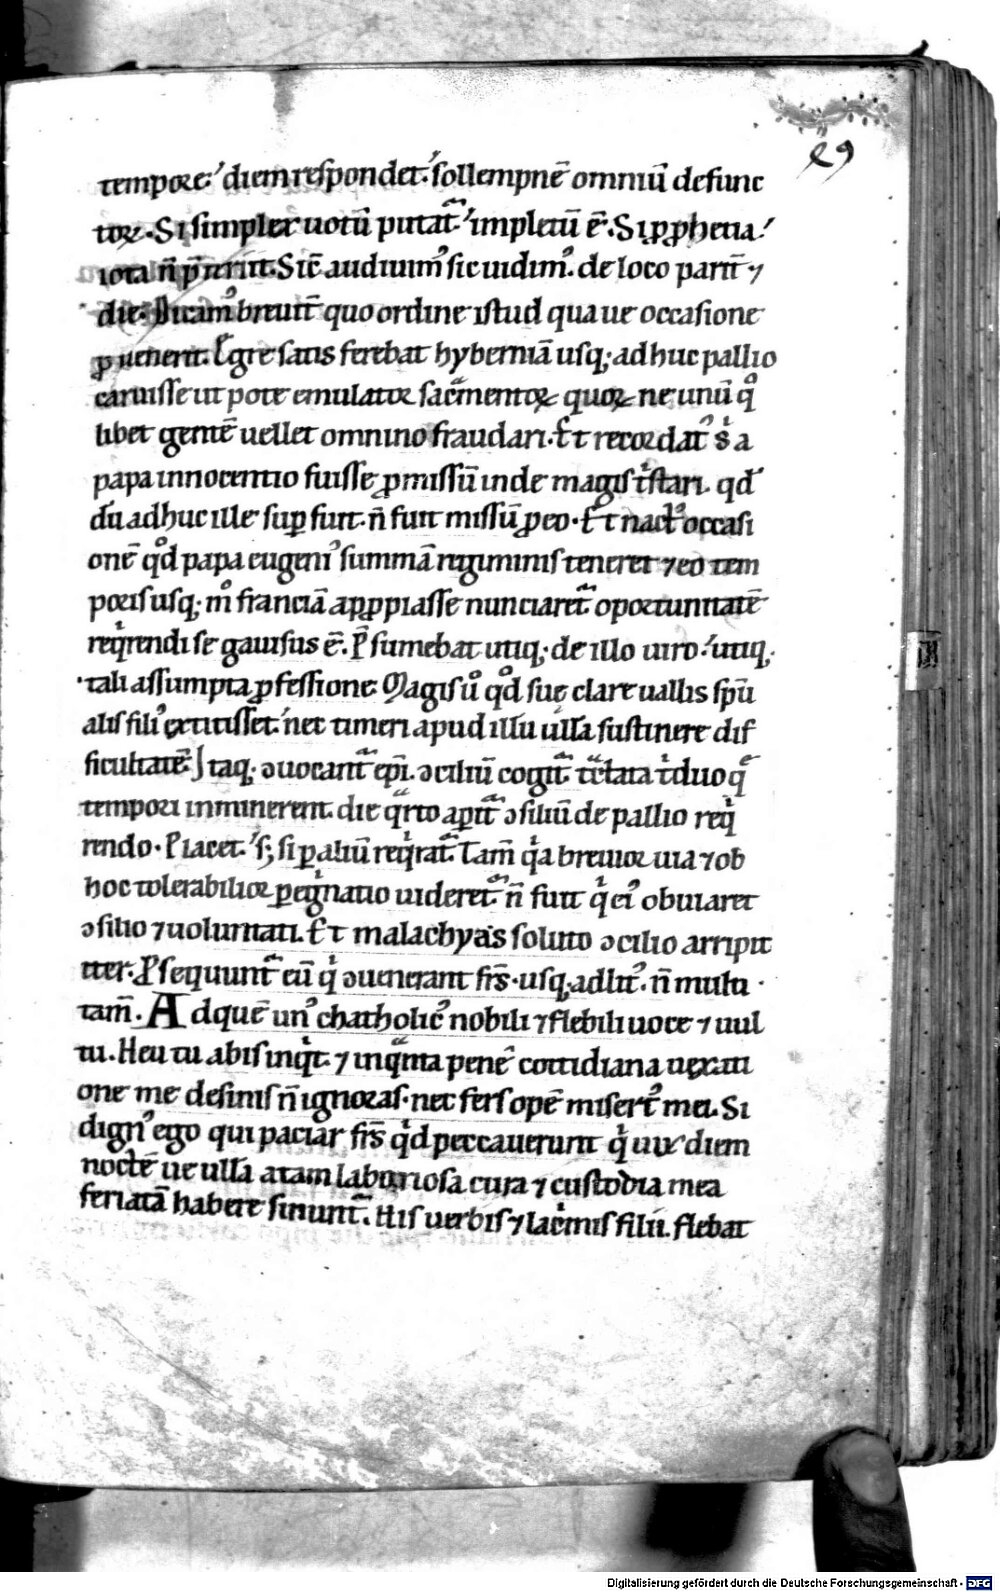 29
tempore. diem respondet. sollempnē omniū defunc
toꝝ. Si simplex uotū putat᷑. impletū ē. Si ꝓphetia.
iota n̄ p̄teriit. Sic̄ audiuimꝰ sic uidimꝰ. de loco parit̄ ⁊
die. Dicamꝰ breuit̄ quo ordine istud qua ue occasione
ꝓuenerit. Egre satis ferebat hyberniā usq; adhuc pallio
caruisse ut pote emulator sac̄mentoꝝ quoꝝ ne unū qͦ
libet gentē uellet omnino fraudari. Et recordatꝰ sͥ a
papa innocentio fuisse ꝓmissū inde magis tͥstari. qd̛
dū adhuc ille suꝑ fuit. n̄ fuit missū ꝓ eo. Et nactꝰ occasi
onē qͦd papa eugeniꝰ summā regiminis teneret ⁊ eo tem
poris usq; mͦ franciā apꝓpiasse nunciaret᷑ oportunitatē
reqͥrendi se gauisus ē. P̄sumebat utiq; de illo uiro. utiq;
tali assumpta ꝓfessione. Magis uͦ qͦd sue clare uallis sp̄u
alis filiꝰ extitisset. nec timeri apud illū ullā sustinere dif
ficultatē. Itaq; ꝯuocant᷑ ep̄i. ꝯciliū cogit᷑. tͣctata tͥduo q̄
tempori inminerent. die qͣrto aperit᷑ ꝯsiliū de pallio reqͥ
rendo. Placet. s; si ꝑ aliū reqͥrat᷑. Tam̄ qͥa breuior uia ⁊ ob
hoc tolerabilior ꝑegͥnatio uideret᷑. n̄ fuit qͥ eiꝰ obuiaret
ꝯsilio ⁊ uoluntati. Et malachyas soluto ꝯcilio arripit
iter. P̄sequunt᷑ eū qͥ ꝯuenerant frs̄. usq; ad litꝰ. n̄ multi
tam̄. Ad quē unꝰ chatholicꝰ nobili ⁊ flebili uoce ⁊ uul
tu. Heu tu abis inqͥt. ⁊ in qͣnta penē cottidiana uexati
one me desinis n̄ ignoras. nec fers opē misertꝰ mei. Si
dignꝰ ego qui patiar frs̄ qͥd peccauerunt qͥ uix diem
noctē ue ullā a tam laboriosa cura ⁊ custodia mea
feriatā habere sinunt᷑. His uerbis ⁊ lacͥmis filii. flebat
Digitalisierung gefördert durch die Deutsche Forschungsgemeinschaft - DFG